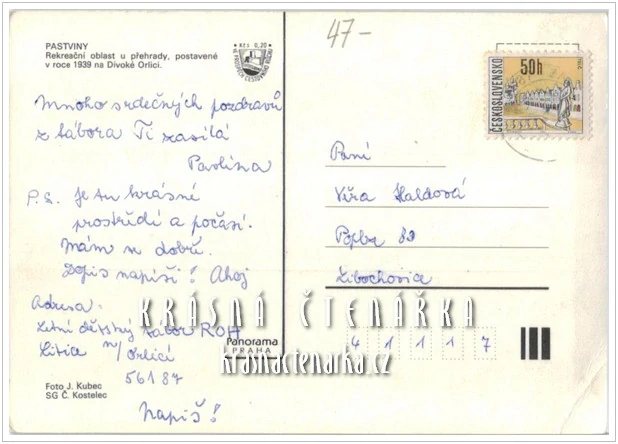 47-
PASTVINY
Rekreační oblast u přehrady, postavené
v roce 1939 na Divoké Orlici.
Kčs 0,20
50h
ČESKOSLOVENSKO
Mnoho srdečných pozdravů
z tábora Ti zasílá
Pavlína
P.S. Je tu krásné
prostředí a počasí.
Mám se dobře.
Dopis napíši! Ahoj
Adresa:
Letní dětský tábor ROH
Litice n/Orlicí
561 87
Napiš!
Paní
Věra Haldová
80
Libochovice
4 1 1 1 7
KRÁSNÁ ČTENÁŘKA
krasnactenarka.cz
Panorama
PRAHA
Foto J. Kubec
SG Č. Kostelec